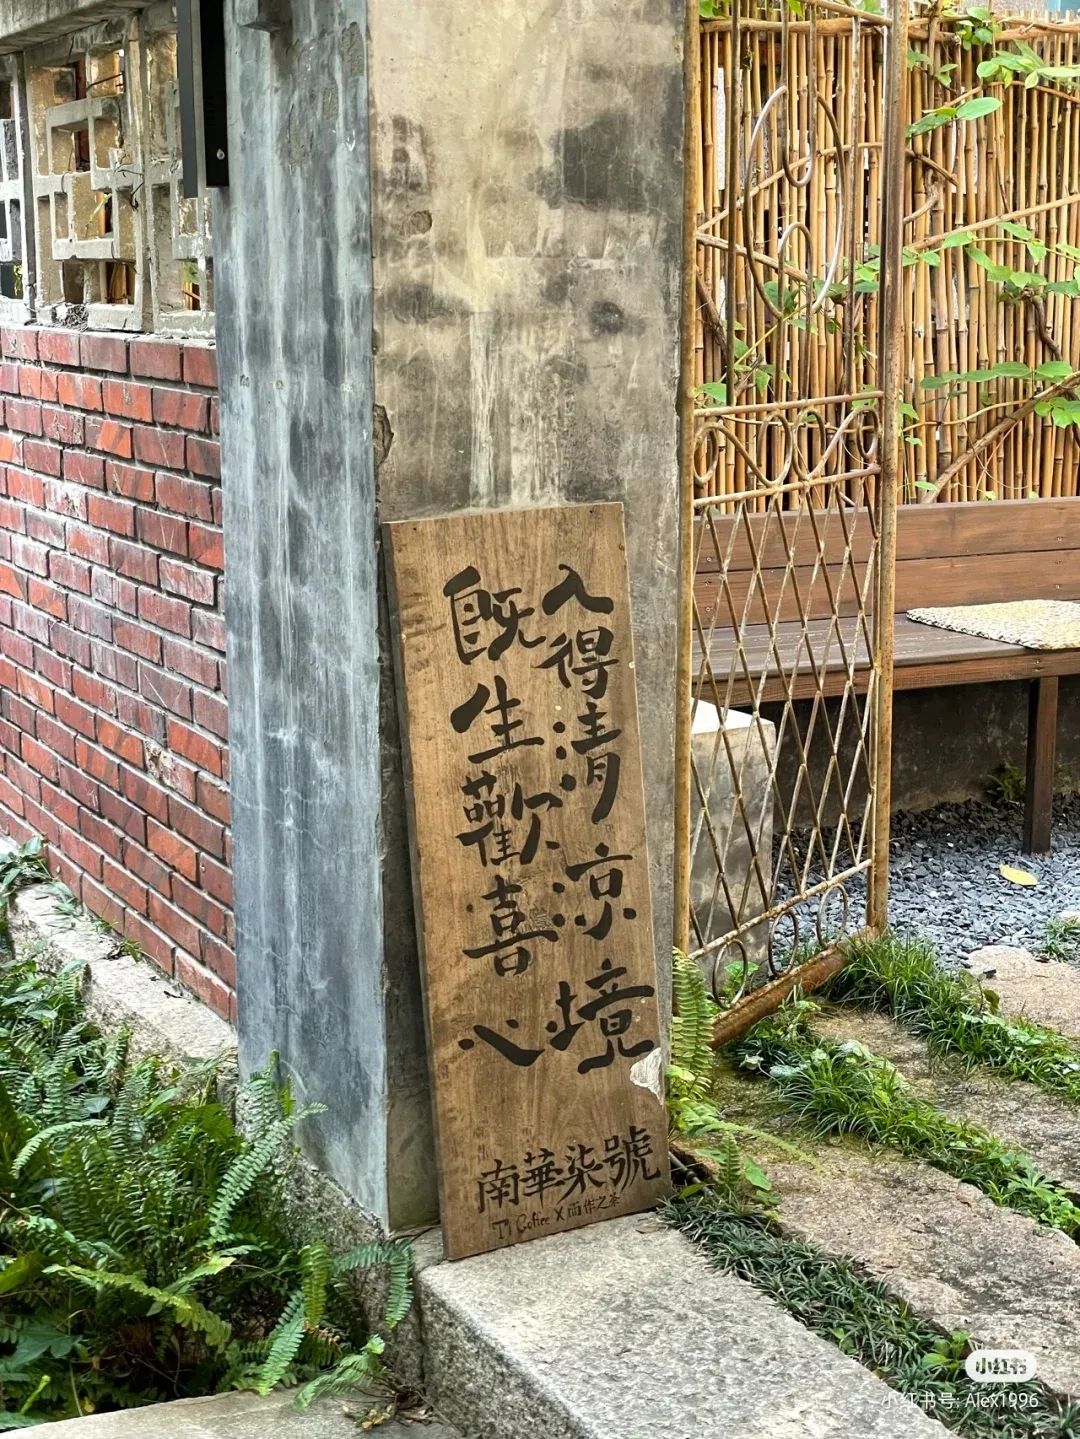 入得清凉境
既生歡喜心
南華柒號
T7 Coffee X 雨作之茶
小红书
小红书号: Alex1996